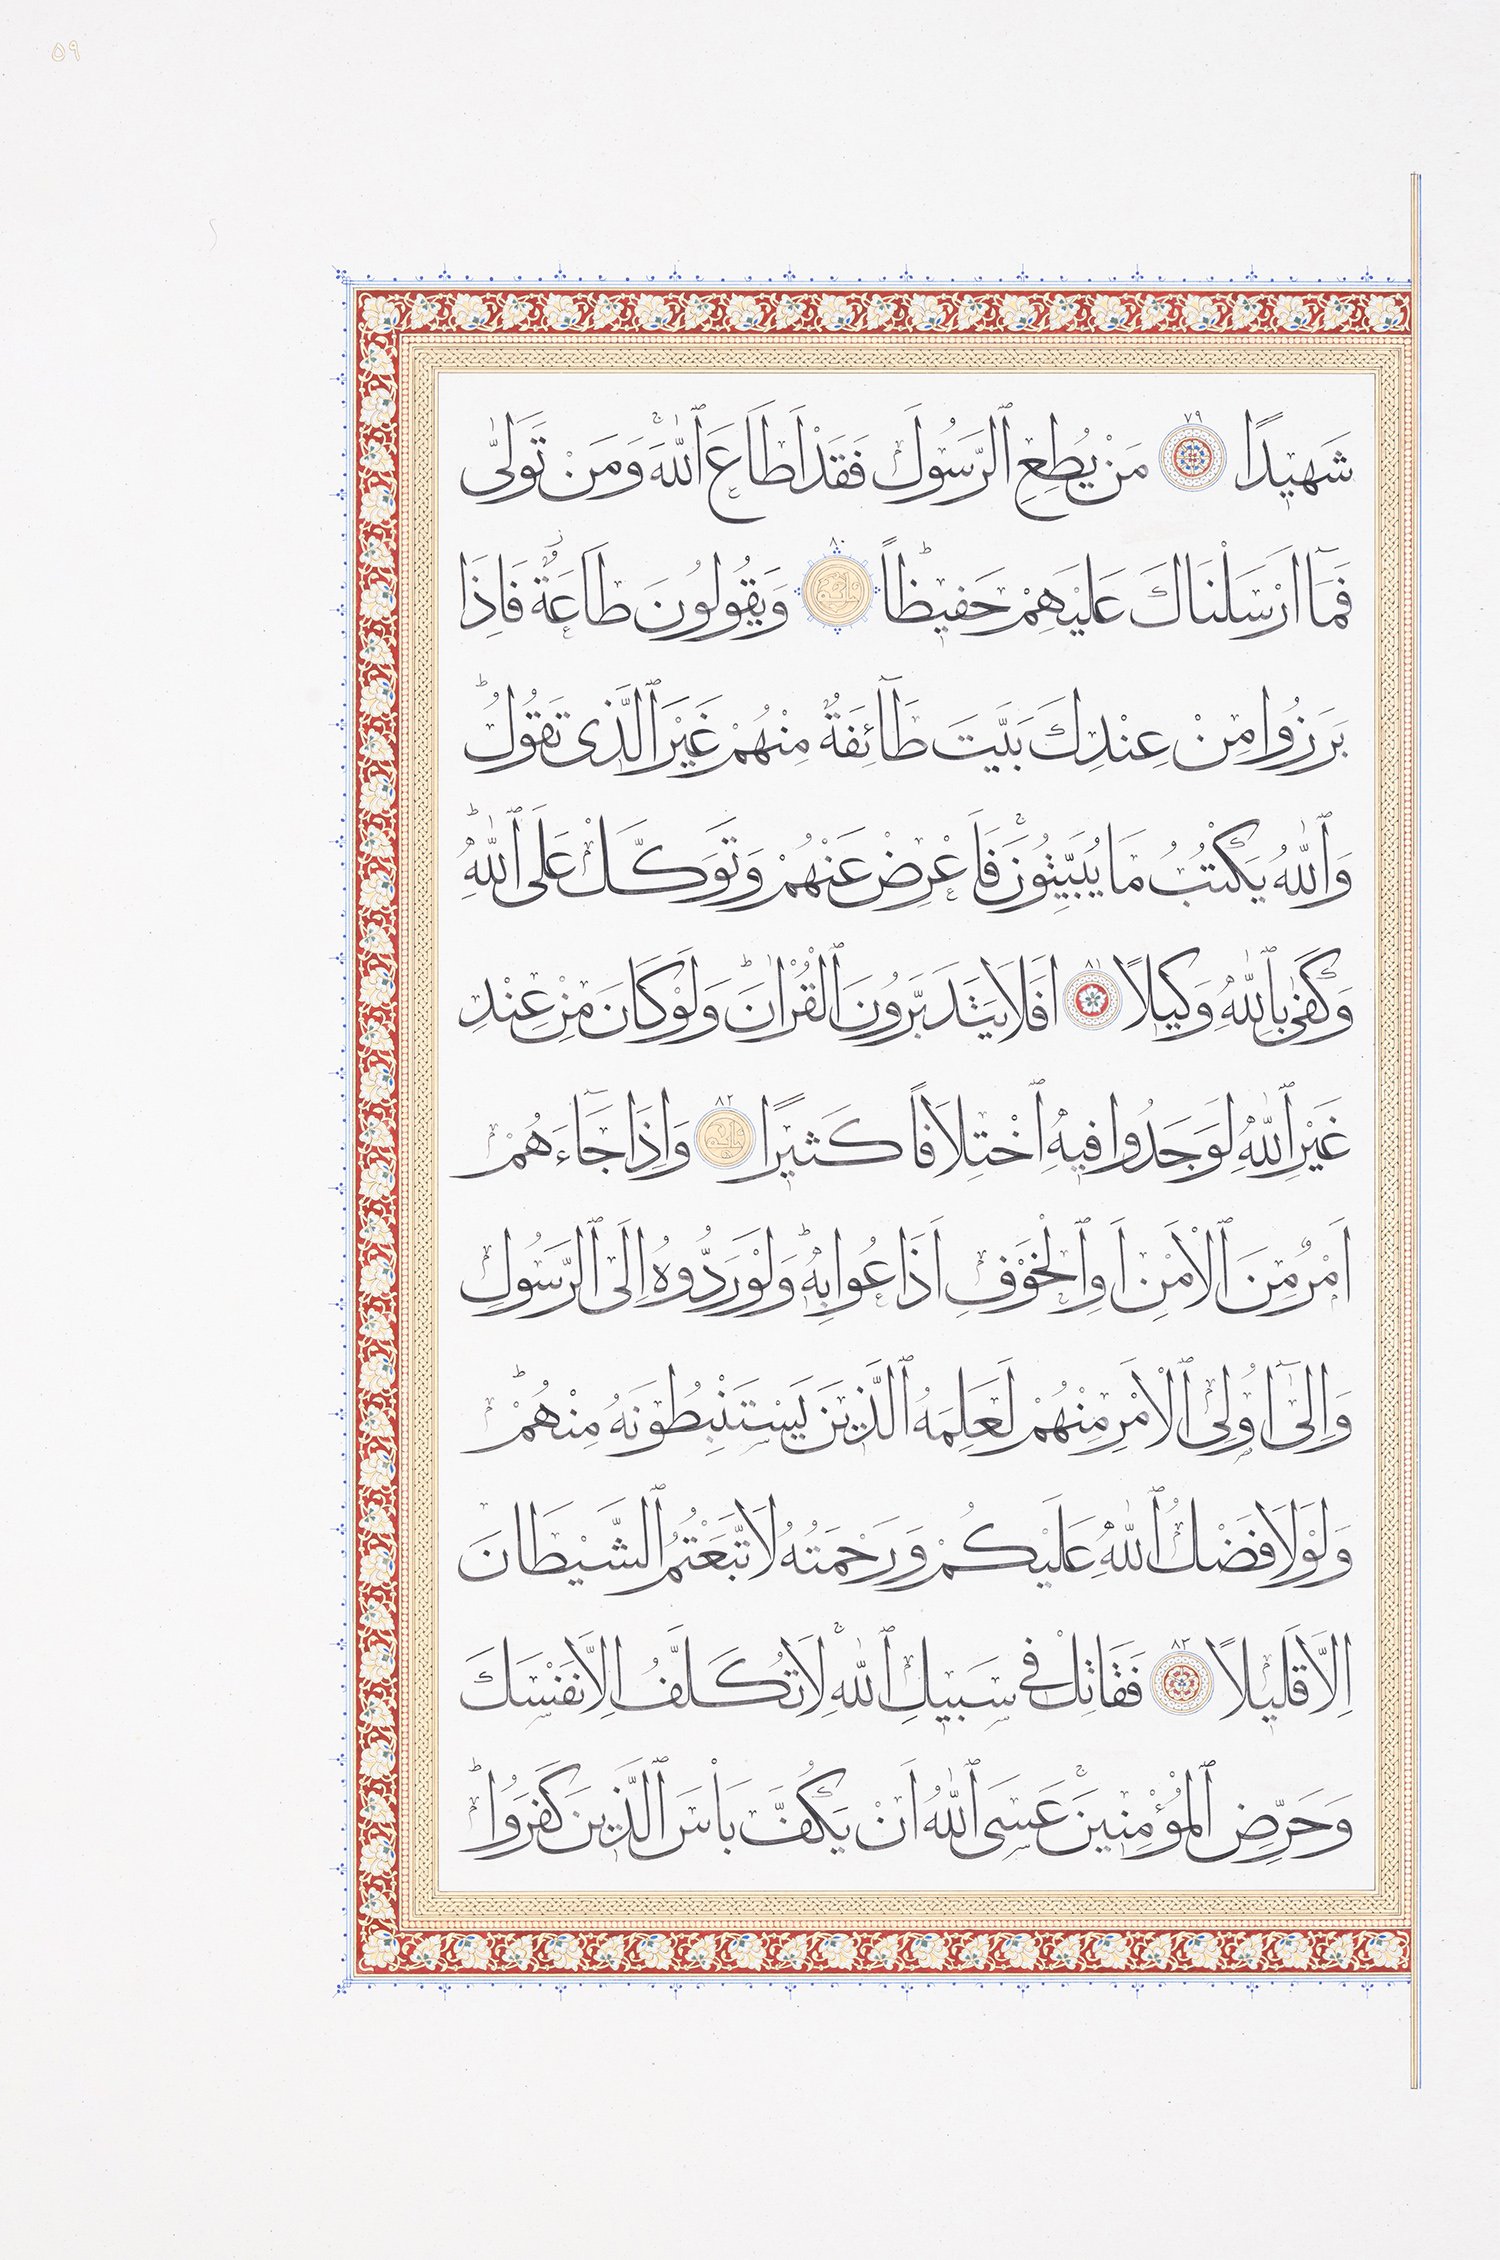 ٥٩
شَهٖيدًا ٧٩ مَنْ يُطِعِ ٱلرَّسُولَ فَقَدْ اَطَاعَ ٱللّٰهَۚ وَمَنْ تَوَلّٰى
فَمَٓا اَرْسَلْنَاكَ عَلَيْهِمْ حَفٖيظًاؕ ٨٠ وَيَقُولُونَ طَاعَةٌؗ فَاِذَا
بَرَزُوا مِنْ عِنْدِكَ بَيَّتَ طَٓائِفَةٌ مِنْهُمْ غَيْرَ ٱلَّذٖى تَقُولُؕ
وَٱللّٰهُ يَكْتُبُ مَا يُبَيِّتُونَۚ فَاَعْرِضْ عَنْهُمْ وَتَوَكَّلْ عَلَى ٱللّٰهِؕ
وَكَفٰى بِٱللّٰهِ وَكٖيلًا ٨١ اَفَلَا يَتَدَبَّرُونَ ٱلْقُرْاٰنَؕ وَلَوْ كَانَ مِنْ عِنْدِ
غَيْرِ ٱللّٰهِ لَوَجَدُوا فٖيهِ ٱخْتِلَافًا كَثٖيرًا ٨٢ وَاِذَا جَٓاءَهُمْ
اَمْرٌ مِنَ ٱلْاَمْنِ اَوِ ٱلْخَوْفِ اَذَاعُوا بِهٖؕ وَلَوْ رَدُّوهُ اِلَى ٱلرَّسُولِ
وَاِلٰٓى اُو۬لِى ٱلْاَمْرِ مِنْهُمْ لَعَلِمَهُ ٱلَّذٖينَ يَسْتَنْبِطُونَهُ مِنْهُمْؕ
وَلَوْلَا فَضْلُ ٱللّٰهِ عَلَيْكُمْ وَرَحْمَتُهُ لَاتَّبَعْتُمُ ٱلشَّيْطَانَ
اِلَّا قَلٖيلًا ٨٣ فَقَاتِلْ فٖى سَبٖيلِ ٱللّٰهِۚ لَا تُكَلَّفُ اِلَّا نَفْسَكَ
وَحَرِّضِ ٱلْمُؤْمِنٖينَۚ عَسَى ٱللّٰهُ اَنْ يَكُفَّ بَاْسَ ٱلَّذٖينَ كَفَرُواؕ